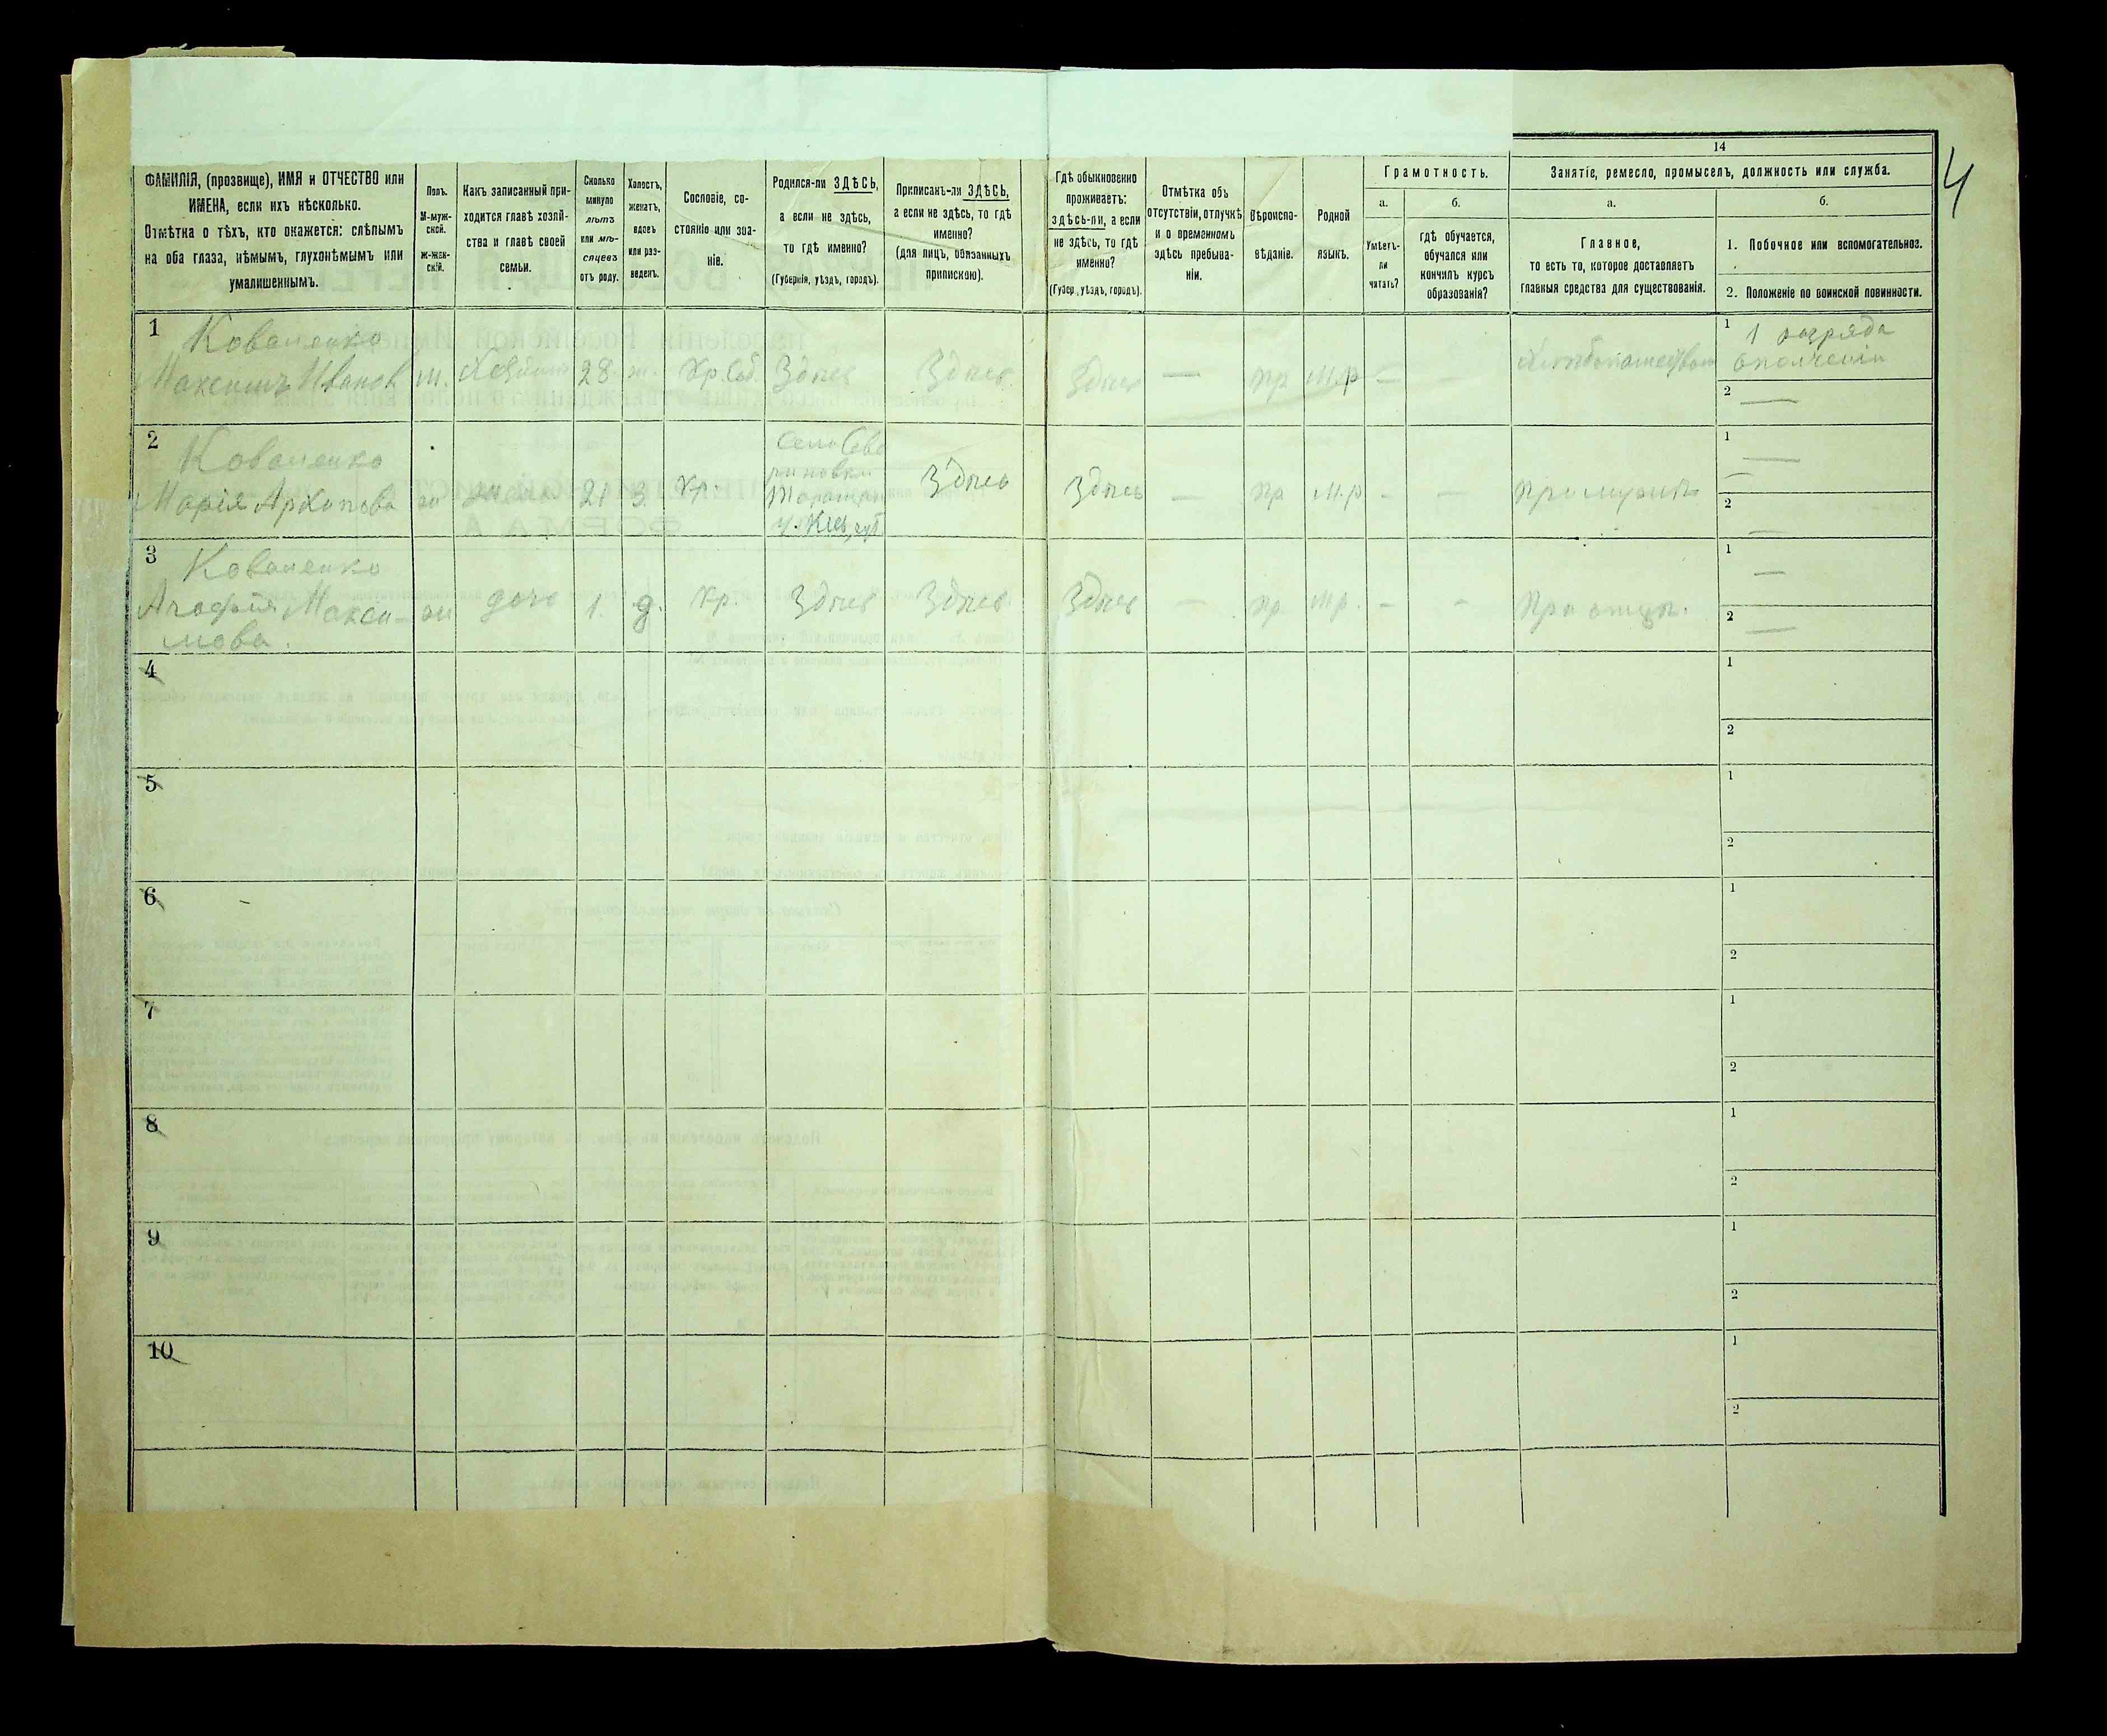 14
4
ФАМИЛІЯ, (прозвище), ИМЯ и ОТЧЕСТВО или
ИМЕНА, если ихъ нѣсколько.
Отмѣтка о тѣхъ, кто окажется: слѣпымъ
на оба глаза, нѣмымъ, глухонѣмымъ или
умалишеннымъ.
Полъ.
М-муж-
ской.
ж-жен-
скій.
Какъ записанный при-
ходится главѣ хозяй-
ства и главѣ своей
семьи.
Сколько
минуло
лѣтъ
или мѣ-
сяцевъ
отъ роду.
Холостъ,
женатъ,
вдовъ
или раз-
веденъ.
Сословіе, со-
стояніе или зва-
ніе.
Родился-ли ЗДѢСЬ,
а если не здѣсь,
то гдѣ именно?
(Губернія, уѣздъ, городъ).
Приписанъ-ли ЗДѢСЬ,
а если не здѣсь, то гдѣ
именно?
(для лицъ, обязанныхъ
припискою).
Гдѣ обыкновенно
проживаетъ:
здѣсь-ли, а если
не здѣсь, то гдѣ
именно?
(Губер., уѣздъ, городъ).
Отмѣтка объ
отсутствіи, отлучкѣ
и о временномъ
здѣсь пребыва-
ніи.
Вѣроиспо-
вѣданіе.
Родной
языкъ.
Грамотность.
а.
Умѣетъ-
ли
читать?
б.
гдѣ обучается,
обучался или
кончилъ курсъ
образованія?
Занятіе, ремесло, промыселъ, должность или служба.
а.
Главное,
то есть то, которое доставляетъ
главныя средства для существованія.
б.
1. Побочное или вспомогательное.
2. Положеніе по воинской повинности.
1
Коваленко
Максимъ Иванов
м.
Хозяинъ
28
ж.
Кр. Соб.
Здѣсь
Здѣсь
Здѣсь
—
пр
м.р
—
—
1
1 разряда
ополченія
2
—
2
Коваленко
Марія Архипова
ж
жена
21
З.
Кр.
Село
Таращан
у. Кіев. губ
Здѣсь
Здѣсь
—
пр
м.р
-
—
При мужѣ
1
—
2
—
3
Коваленко
Агафія Макси-
мова.
ж
дочь
1.
д.
Кр.
Здѣсь
Здѣсь
Здѣсь
—
пр
м р.
-
-
При отцѣ.
1
—
2
—
4
1
2
5
1
2
6
1
2
7
1
2
8
1
2
9
1
2
10
1
2